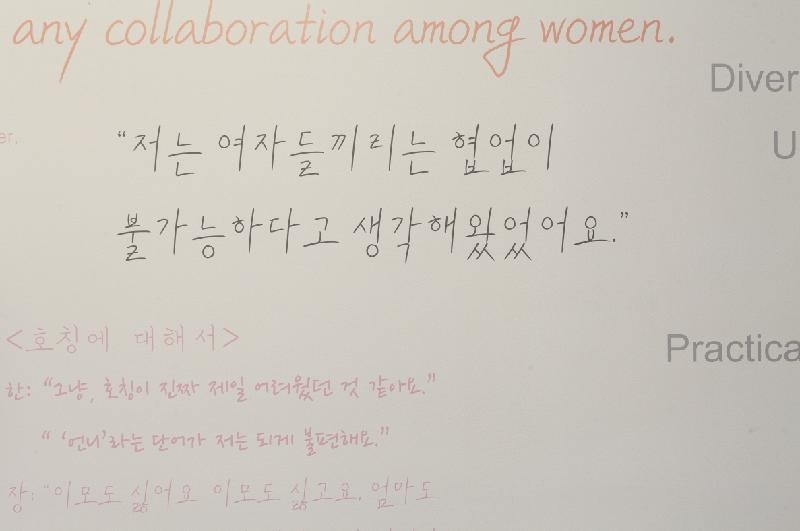 any collaboration among women.
Diver
er.
U
“저는 여자들끼리는 협업이
불가능하다고 생각해왔었어요.”
<호칭에 대해서>
Practica
한: “그냥, 호칭이 진짜 제일 어려웠던 것 같아요.”
“ ‘언니’라는 단어가 저는 되게 불편해요.”
장: “이모도 싫어요 이모도 싫고요. 엄마도